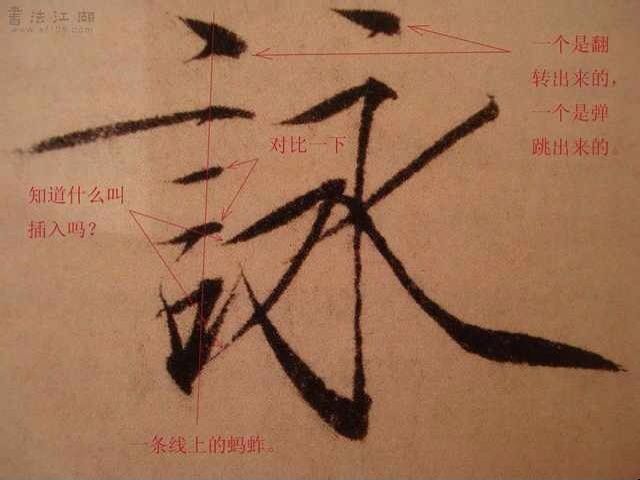 書法江湖
一个是翻
转出来的，
一个是弹
跳出来的。
对比一下
知道什么叫
插入吗？
詠
一条线上的蚂蚱。